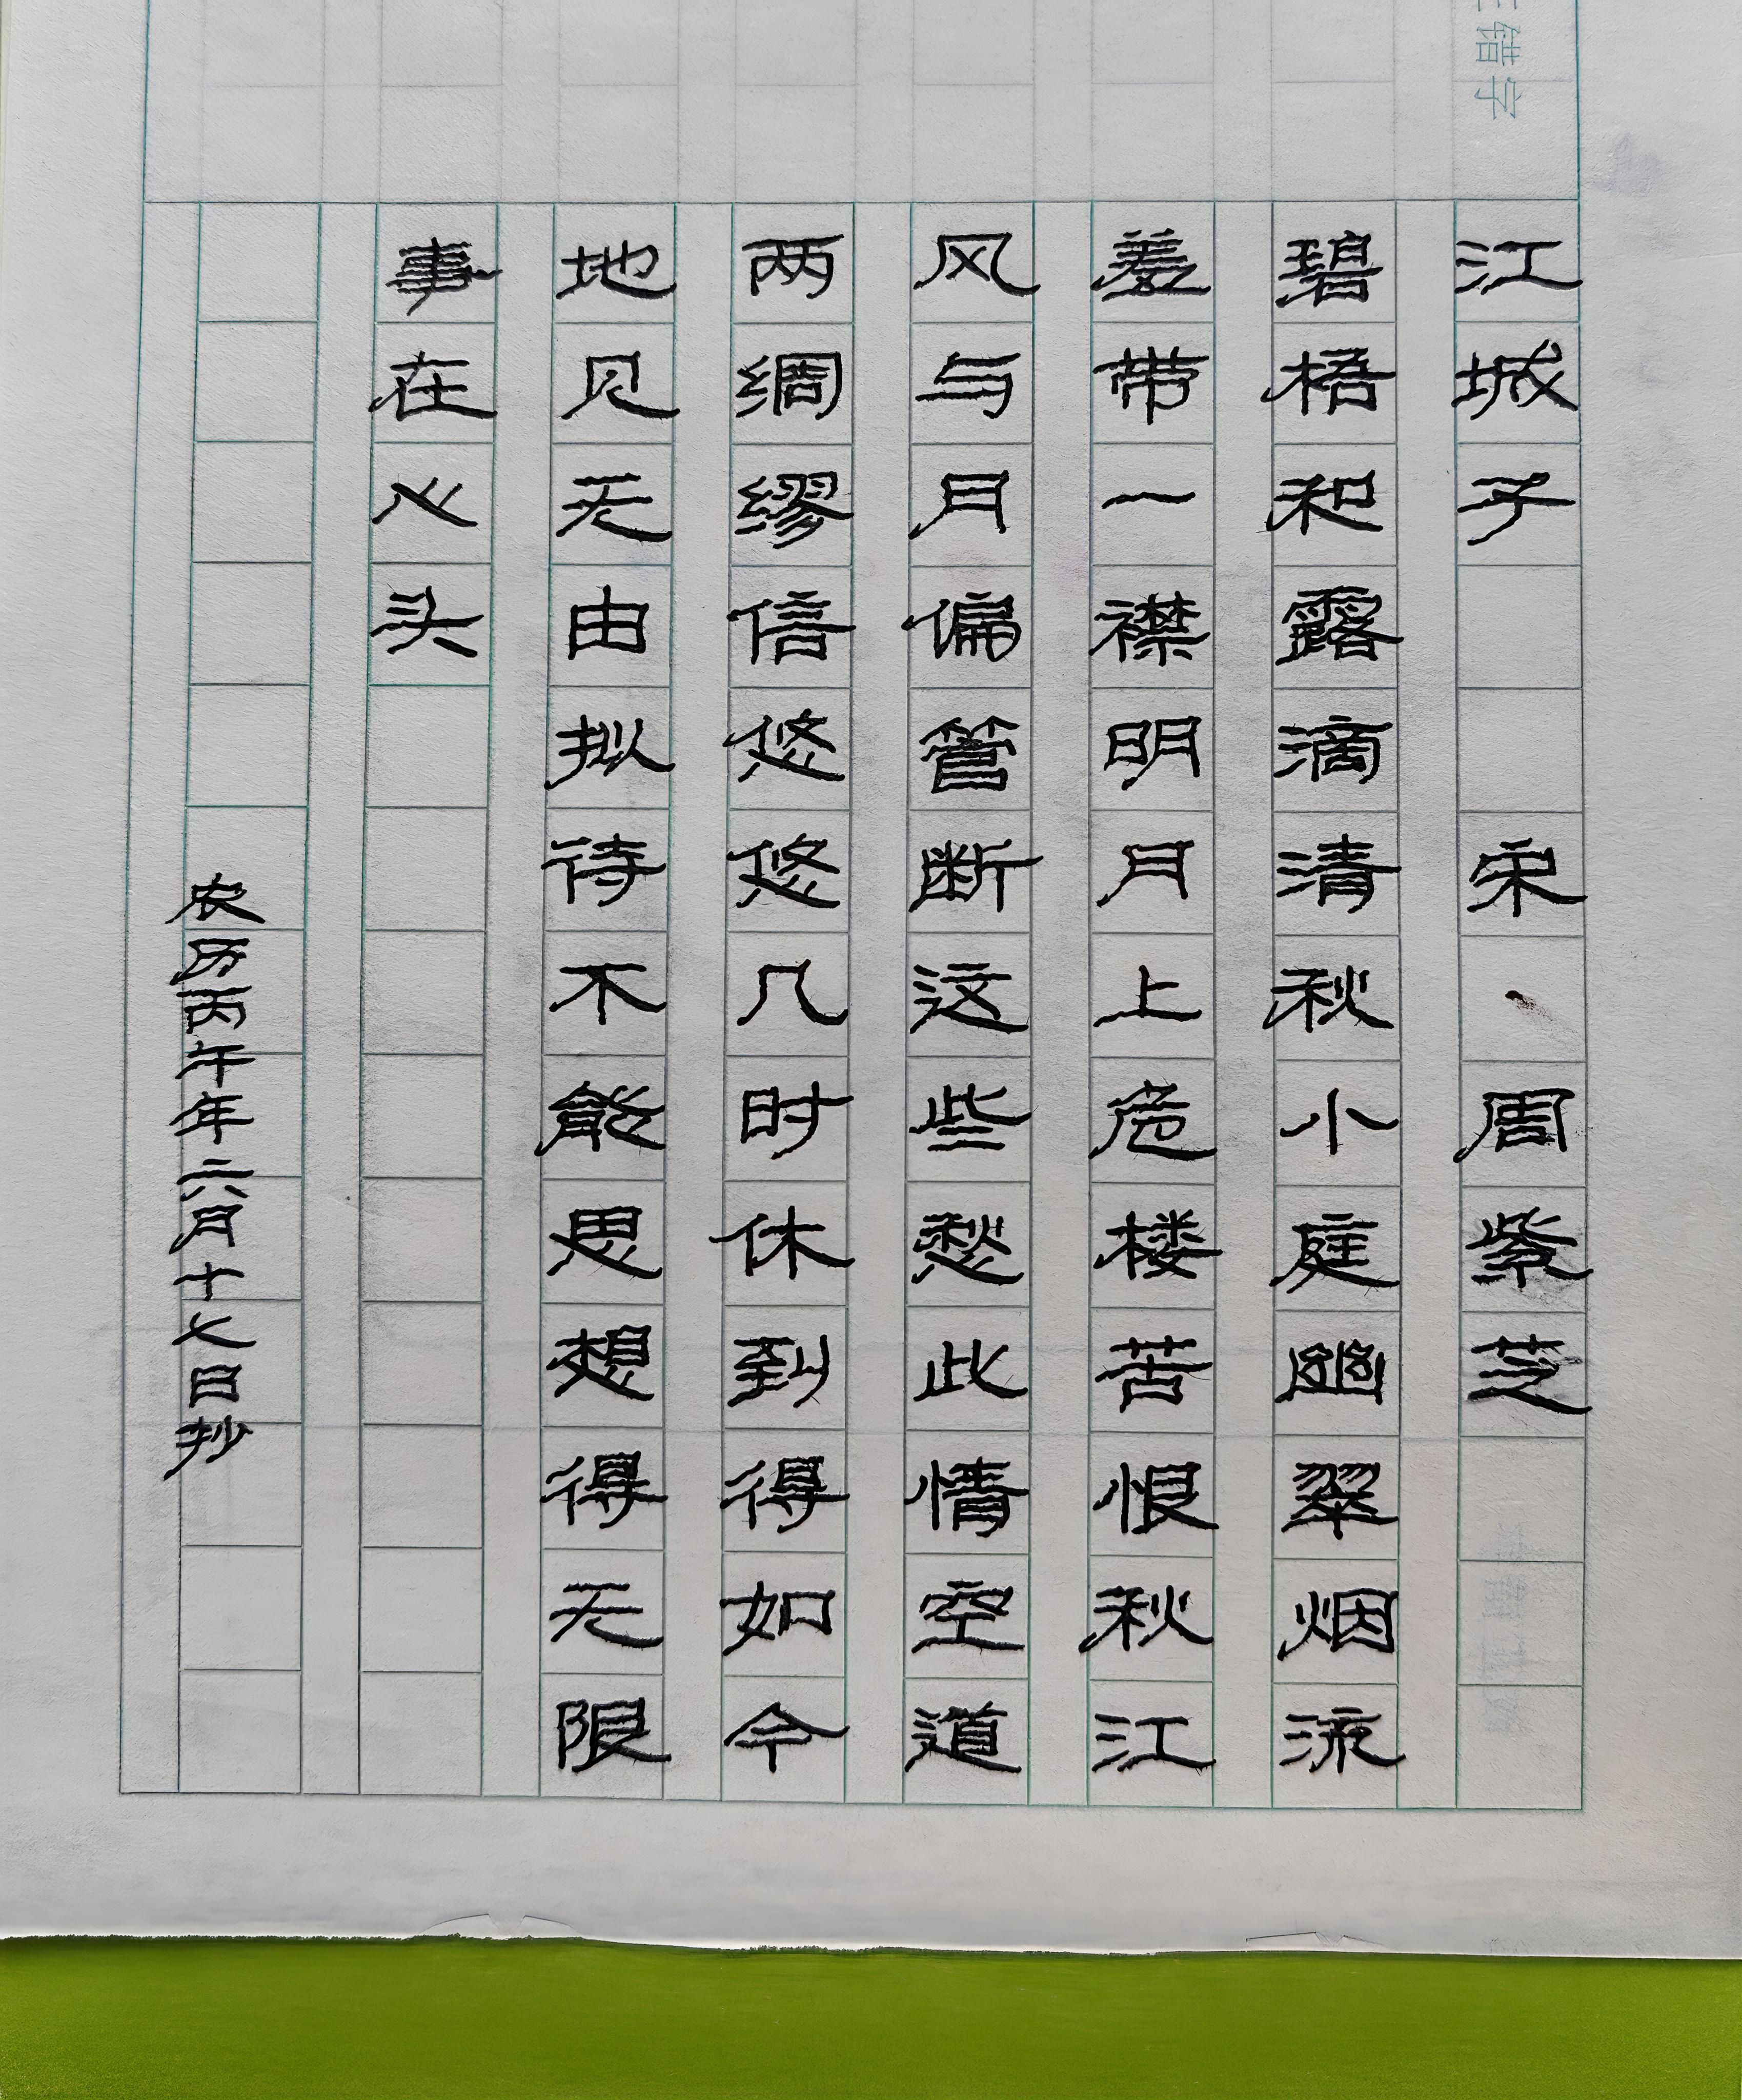 错字
江城子 宋、周紫芝
碧梧和露滴清秋小庭幽翠烟流
羞带一襟明月上危楼苦恨秋江
风与月偏管断这些愁此情空道
两绸缪信悠悠几时休到得如今
地见无由拟待不能思想得无限
事在心头
农历丙午年六月十七日抄